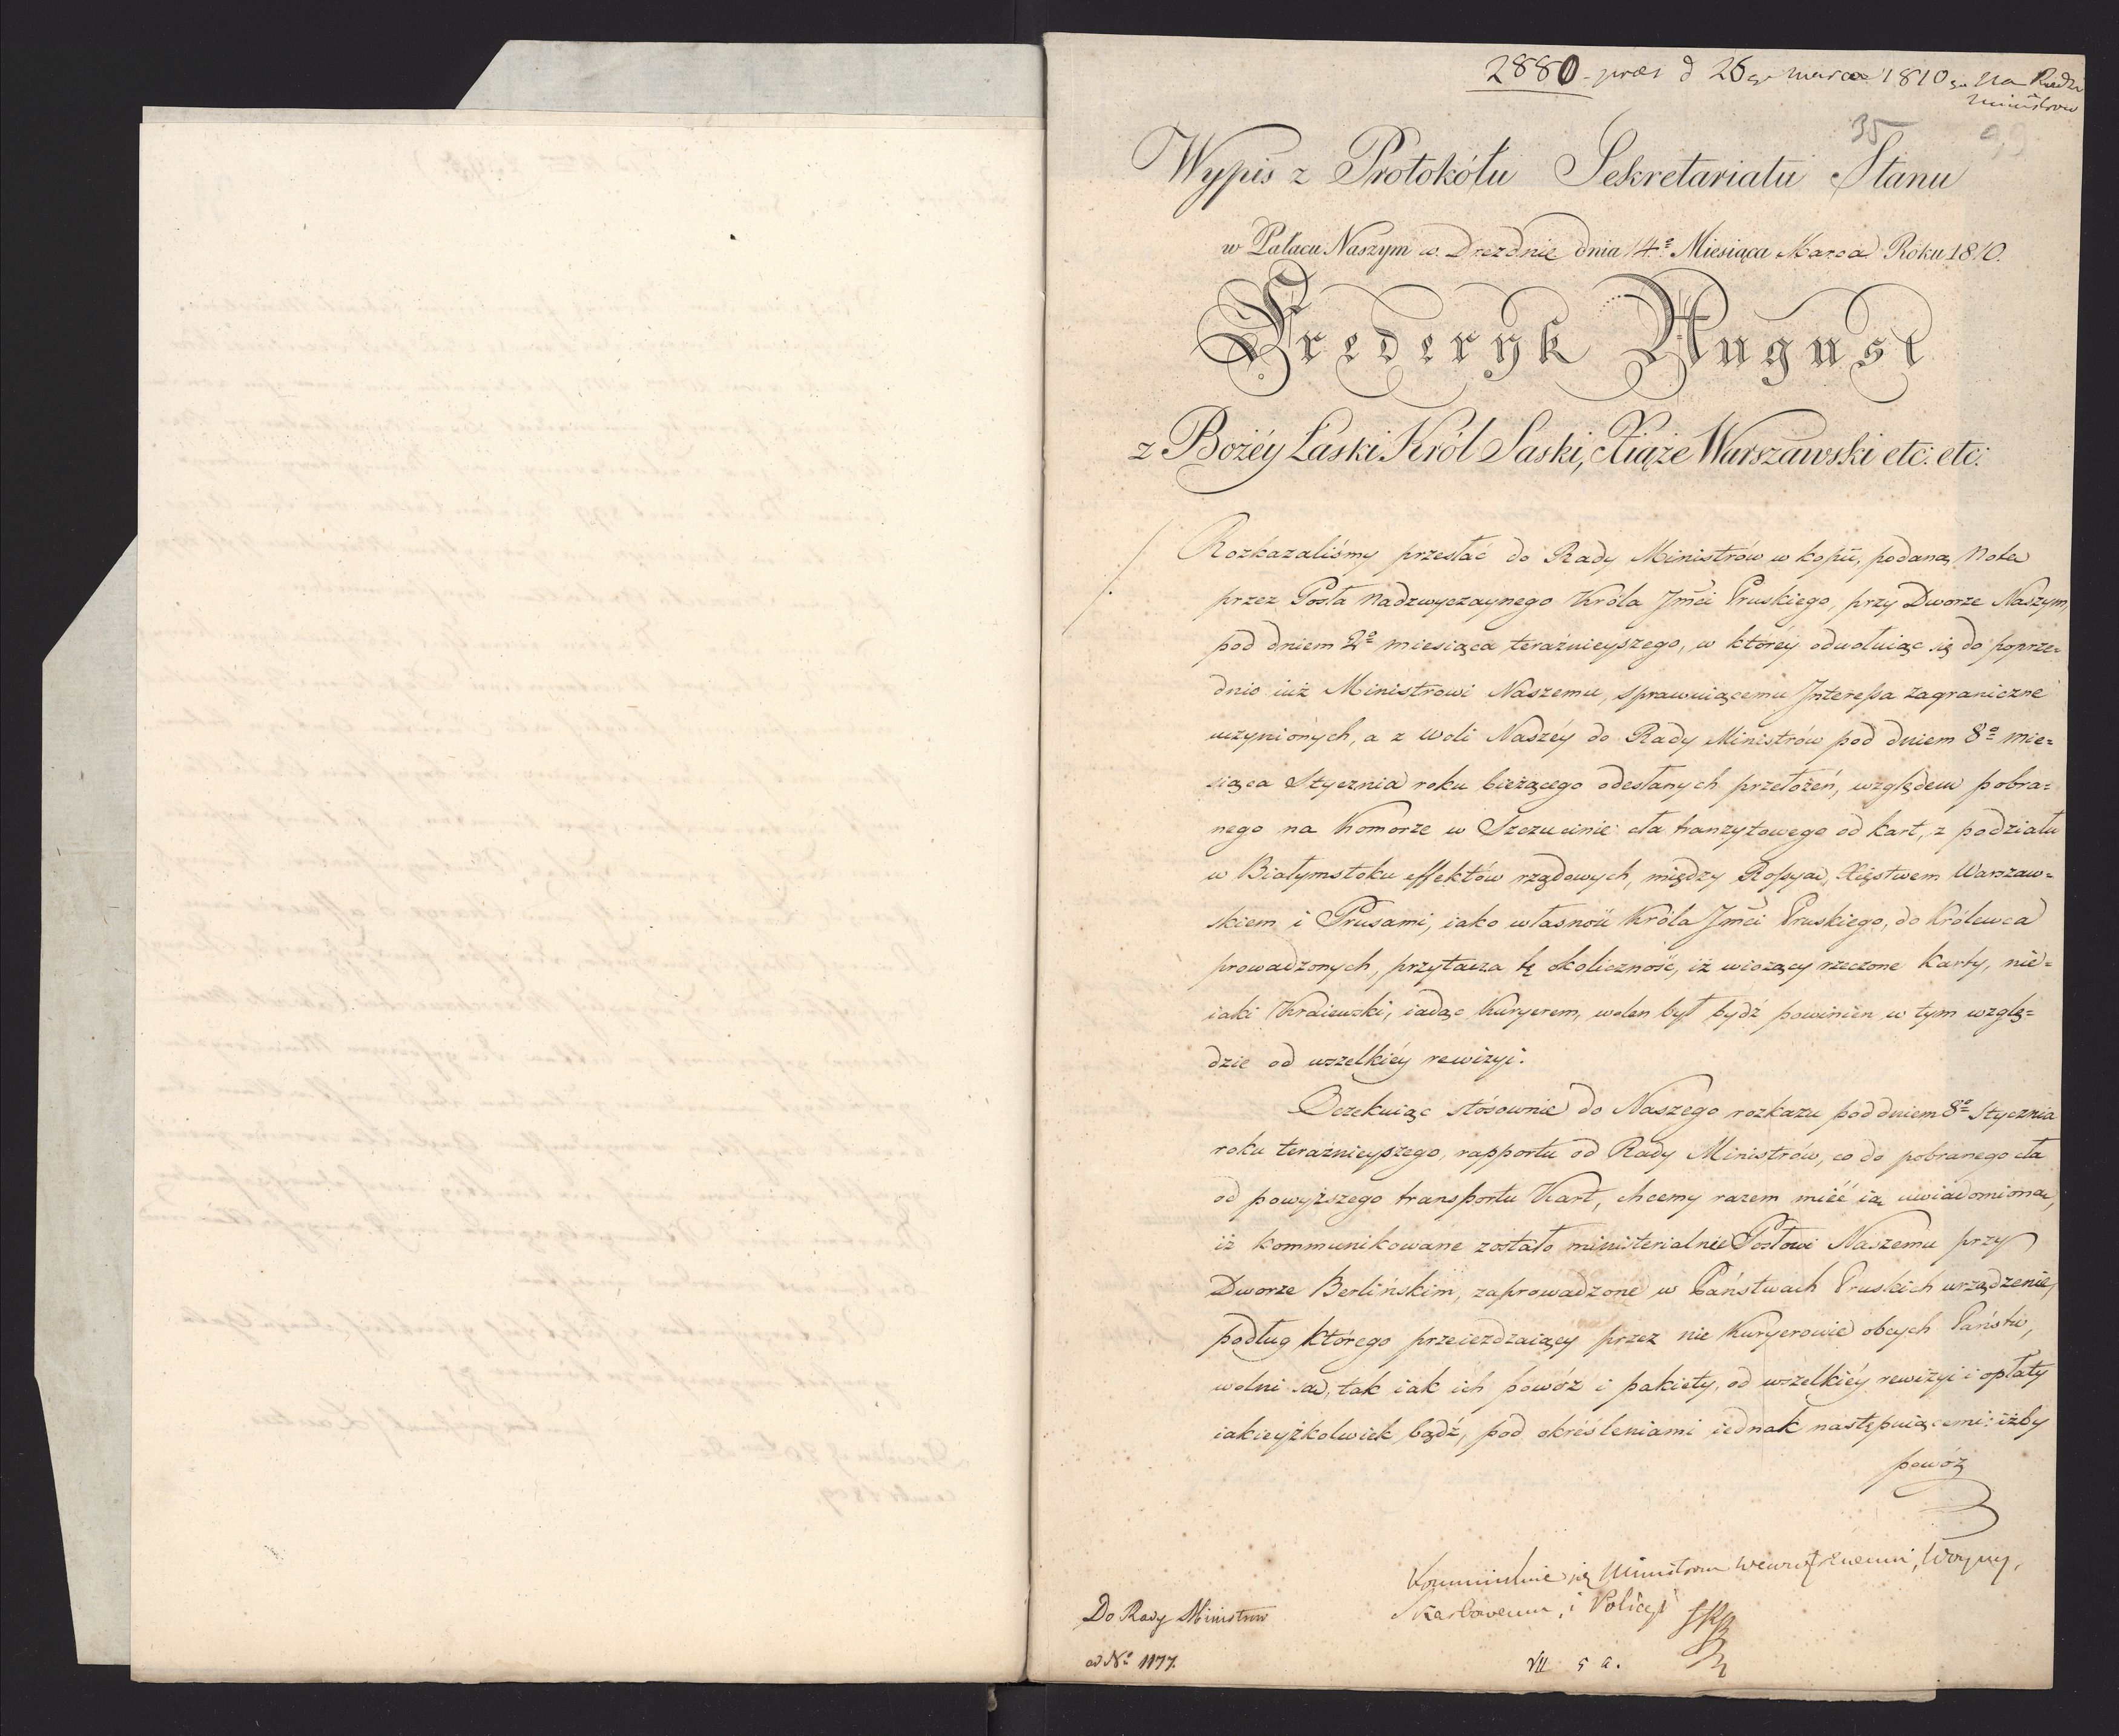 2880 - præs d 26go marca 1810 go Na Radzie
Ministrow
35
99
Wypis z Protokółu Sekretariatu Stanu
w Pałacu Naszym w Dreźdnie dnia 14º Miesiąca Marca Roku 1810.
Frederyk August
z Bożéy Łaski Król Saski, Xiąże Warszawski etc: etc:
Rozkazaliśmy przesłać do Rady Ministrów w kopii, podaną Notę
przez Posła Nadzwyczaynego Króla Jmći Pruskiego, przy Dworze Naszym,
pod dniem 2º miesiąca teraźnieyszego, w któréy odwołuiąc się do poprze=
dnio iuż Ministrowi Naszemu, sprawuiącemu Interessa zagraniczne
uczynionych, a z woli Naszéy do Rady Ministrów pod dniem 8º mie=
siąca Stycznia roku bieżącego odesłanych przełożeń, względem pobra=
nego na Komorze w Szczucinie cła tranzytowego od kart, z podziału
w Białymstoku effektów rządowych, między Rossyą, Xięstwem Warszaw=
skiem i Prusami, iako własność Króla Jmći Pruskiego, do Królewca
prowadzonych, przytacza tę okoliczność, iż wiozący rzeczone karty, nie=
iaki Kraiewski, iadąc Kuryerem, wolen był bydź powinien w tym wzglę=
dzie od wszelkiéy rewizyi.
Oczekuiąc stósownie do Naszego rozkazu pod dniem 8º Stycznia
roku teraznieyszego, rapportu od Rady Ministrów, co do pobranego cła
od powyższego transportu Kart, chcemy razem mieć ią uwiadomioną,
iż kommunikowane zostało ministerialnie Posłowi Naszemu przy
Dworze Berlińskim, zaprowadzone w Państwach Pruskich urządzenie,
podług którego przeieżdżaiący przez nie Kuryerowie obcych Państw,
wolni są, tak iak ich powóz i pakiety, od wszelkiéy rewizyi i opłaty
iakieyżkolwiek bądź, pod okréśleniami iednak następuiącemi: iżby
powóz
Kommunikuie się Ministrom wewnętrznemu, Woyny,
Skarbowemu, i Policyi
Do Rady Ministrow
ad Nº 1177.
VII 5 a.